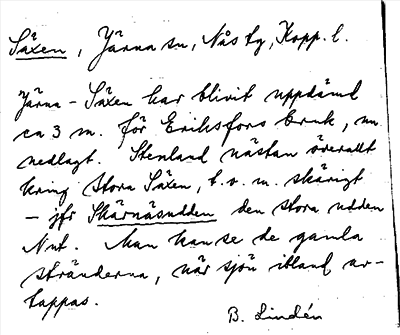 Säxen, Järna sn, Nås tg, Kopp. l.
Järna-Säxen har blivit uppdämd
ca 3 m. för Eriksfors bruk, nu
nedlagt. Stenland nästan överallt
kring Stora Säxen, t.o.m. skärigt
- jfr Skärnäsudden den stora udden
Nut. Man kan se de gamla
stränderna, när sjön ibland av-
tappas.
B. Lindén